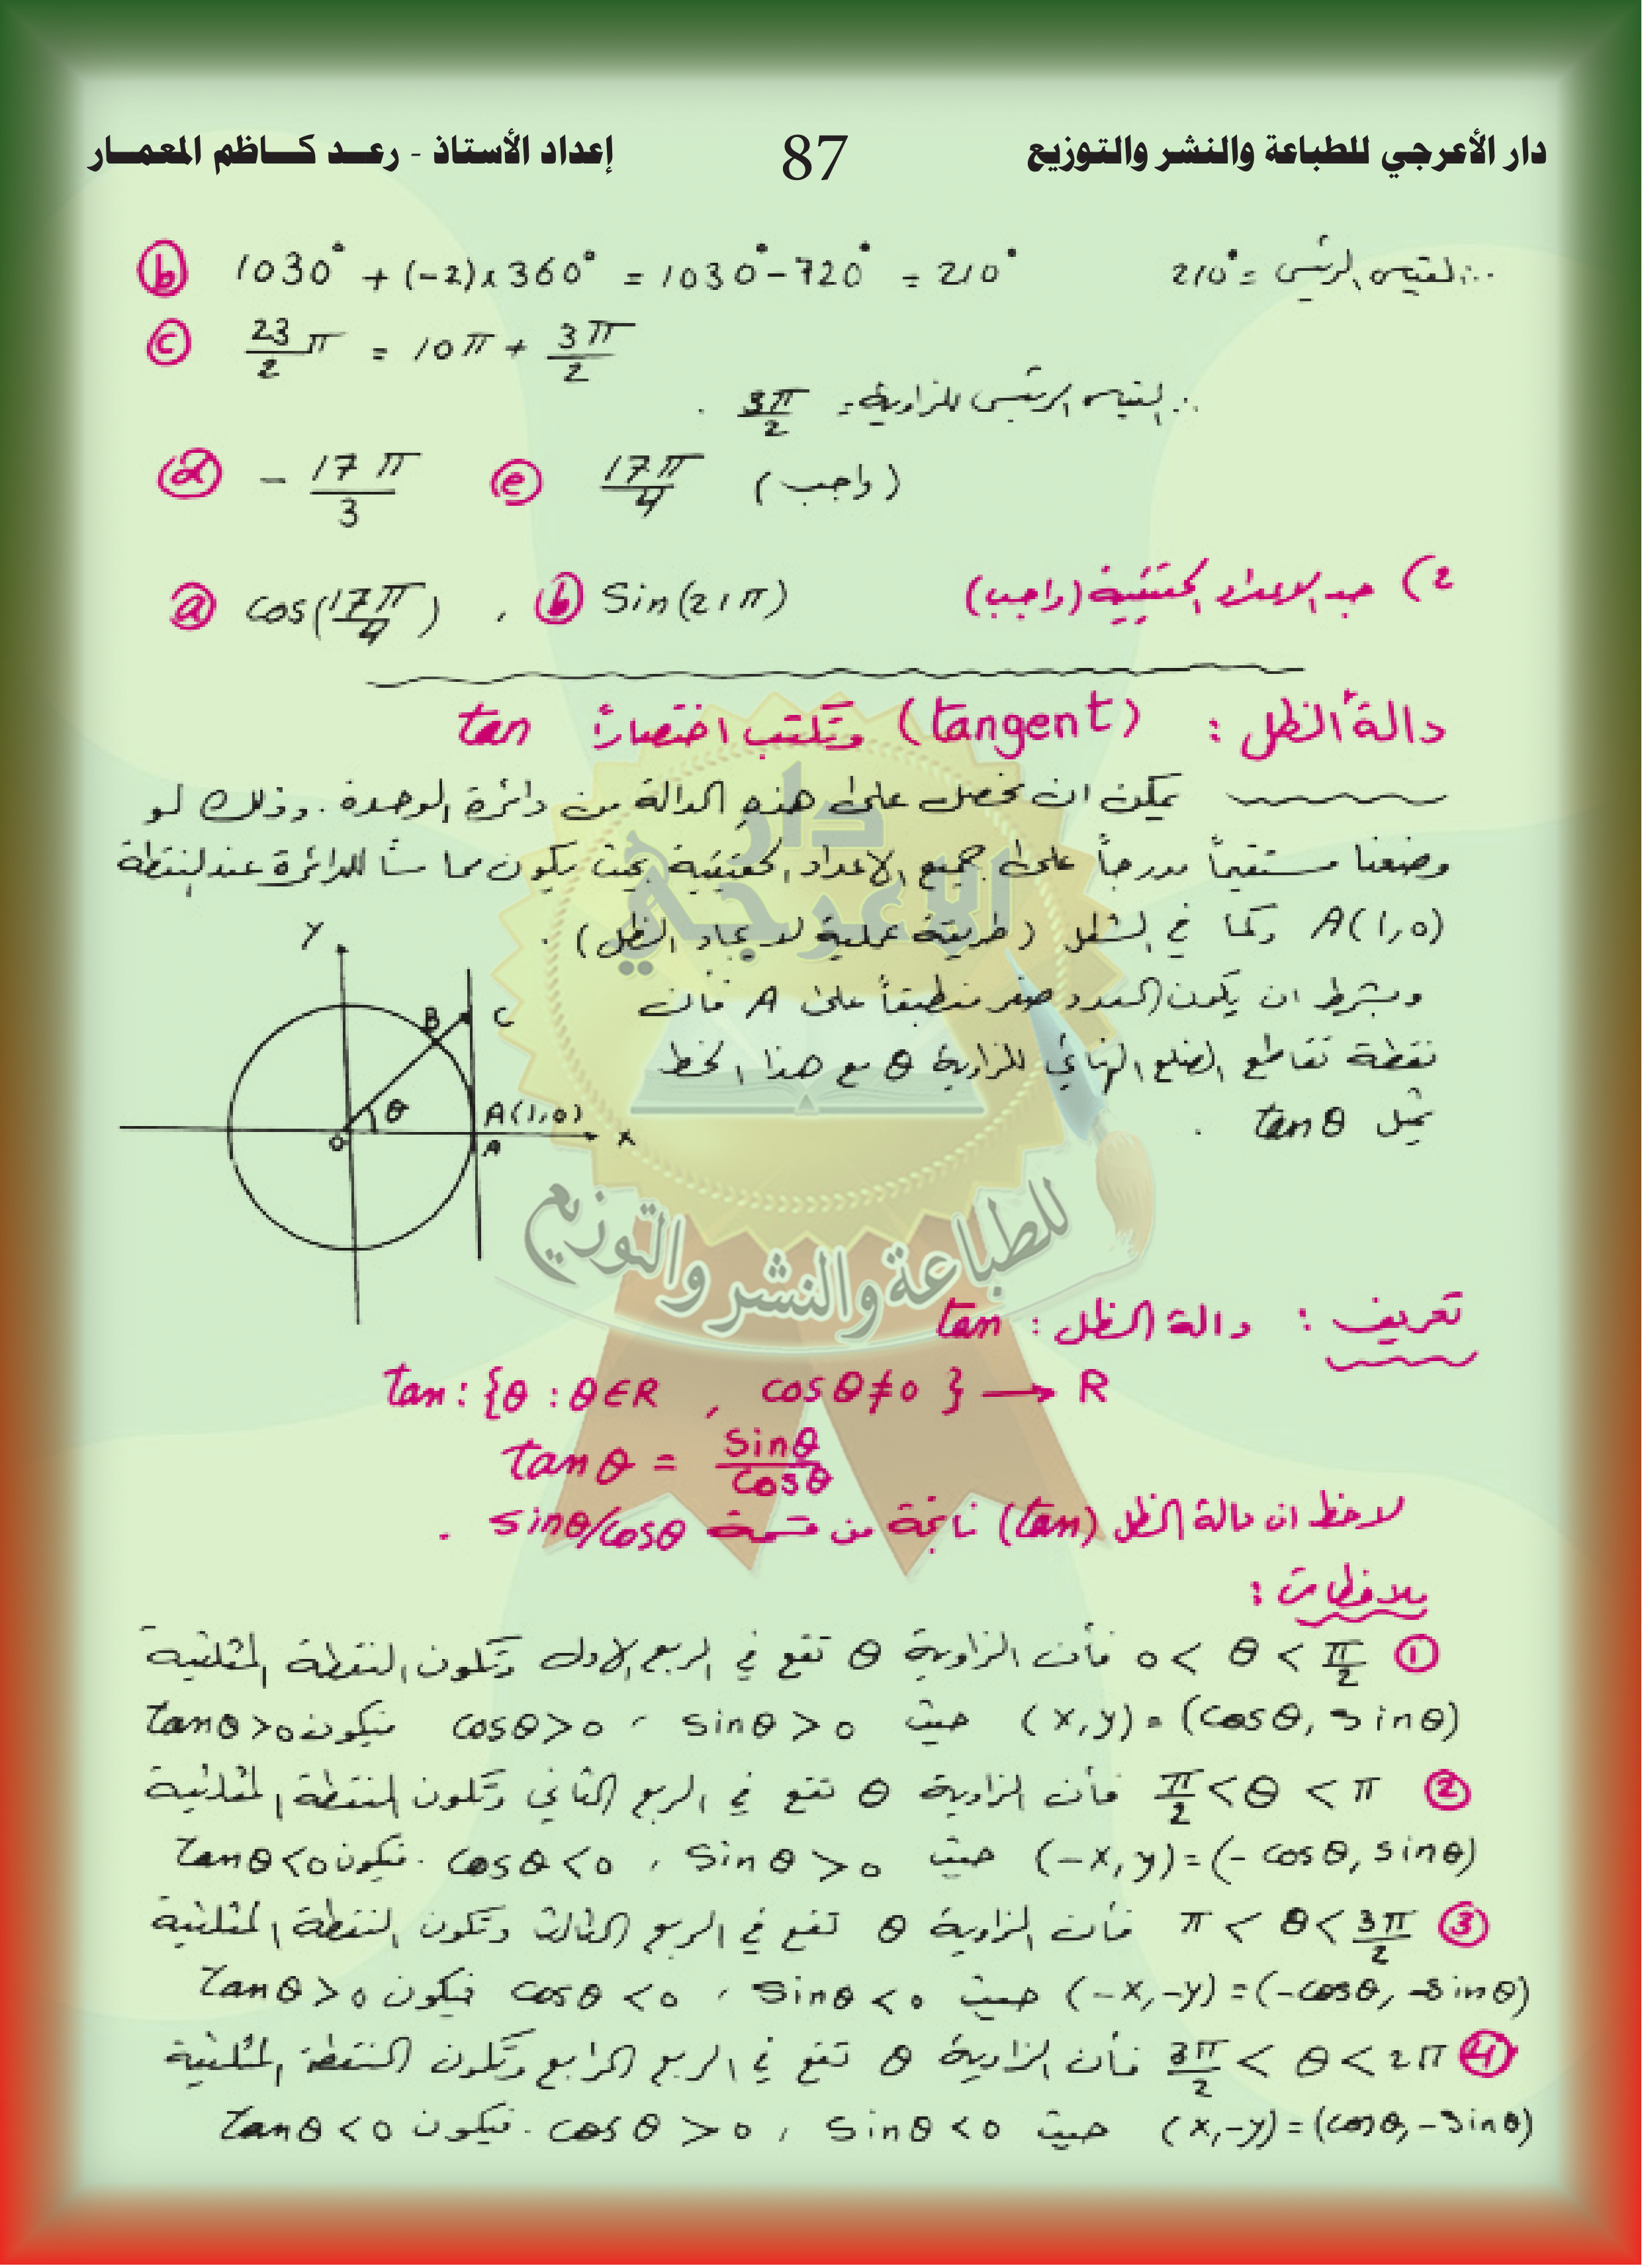 دار الأعرجي للطباعة والنشر والتوزيع 87 إعداد الأستاذ - رعـد كـاظم المعمـار
ⓑ 1030° + (-2)x360° = 1030° - 720° = 210° ∴ القياس الرئيسي = 210°
ⓒ 23/2 π = 10π + 3π/2
∴ القياس الرئيسي للزاوية = 3π/2 .
ⓓ - 17π/3 ⓔ 17π/4 (واجب)
2) جد الاعداد الحقيقية (واجب) ⓐ cos(17π/4) , ⓑ Sin(21π)
دالة الظل : (tangent) وتكتب اختصاراً tan
يمكن ان نحصل على هذه الدالة من دائرة الوحدة . وذلك لو
وضعنا مستقيماً مدرجاً على جميع الاعداد الحقيقية بحيث يكون مماساً للدائرة عند النقطة
A(1,0) وكما في الشكل (طريقة عملية لايجاد الظل) .
وبشرط ان يكون العدد صفر منطبقاً على A فأن
نقطة تقاطع الضلع النهائي للزاوية θ مع هذا الخط
يمثل tanθ .
Y
B C
θ A(1,0)
O A X
تعريف : دالة الظل : tan
tan : {θ : θ∈R , cosθ≠0 } → R
tanθ = sinθ/cosθ
لاحظ ان دالة الظل (tan) ناتجة من قسمة sinθ/cosθ .
ملاحظات :
① 0 < θ < π/2 فأن الزاوية θ تقع في الربع الاول وتكون النقطة المثلثية
(x,y) = (cosθ, sinθ) حيث sinθ > 0 ، cosθ>0 فيكون tanθ>0
② π/2 < θ < π فأن الزاوية θ تقع في الربع الثاني وتكون النقطة المثلثية
(-x,y)=(-cosθ, sinθ) حيث Sinθ > 0 ، cosθ<0 . فيكون tanθ<0
③ π < θ < 3π/2 فأن الزاوية θ تقع في الربع الثالث وتكون النقطة المثلثية
(-x,-y) = (-cosθ, -sinθ) حيث Sinθ < 0 ، cosθ <0 فيكون tanθ>0
④ 3π/2 < θ < 2π فأن الزاوية θ تقع في الربع الرابع وتكون النقطة المثلثية
(x,-y)=(cosθ, -sinθ) حيث sinθ <0 ، cosθ > 0 . فيكون tanθ <0
دار
الاعرجي
للطباعة والنشر والتوزيع